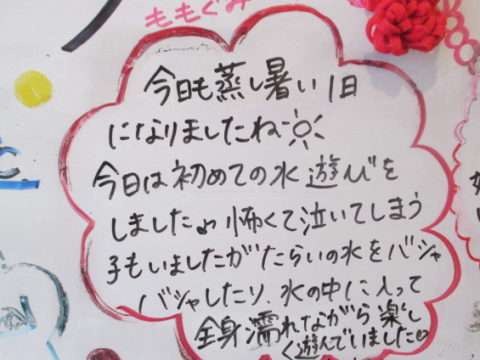 ももぐみ
今日も蒸し暑い1日
になりましたね
今日は初めての水遊びを
しました♪怖くて泣いてしまう
子もいましたがたらいの水をバシャ
バシャしたり、水の中に入って
全身濡れながら楽し
く遊んでいました